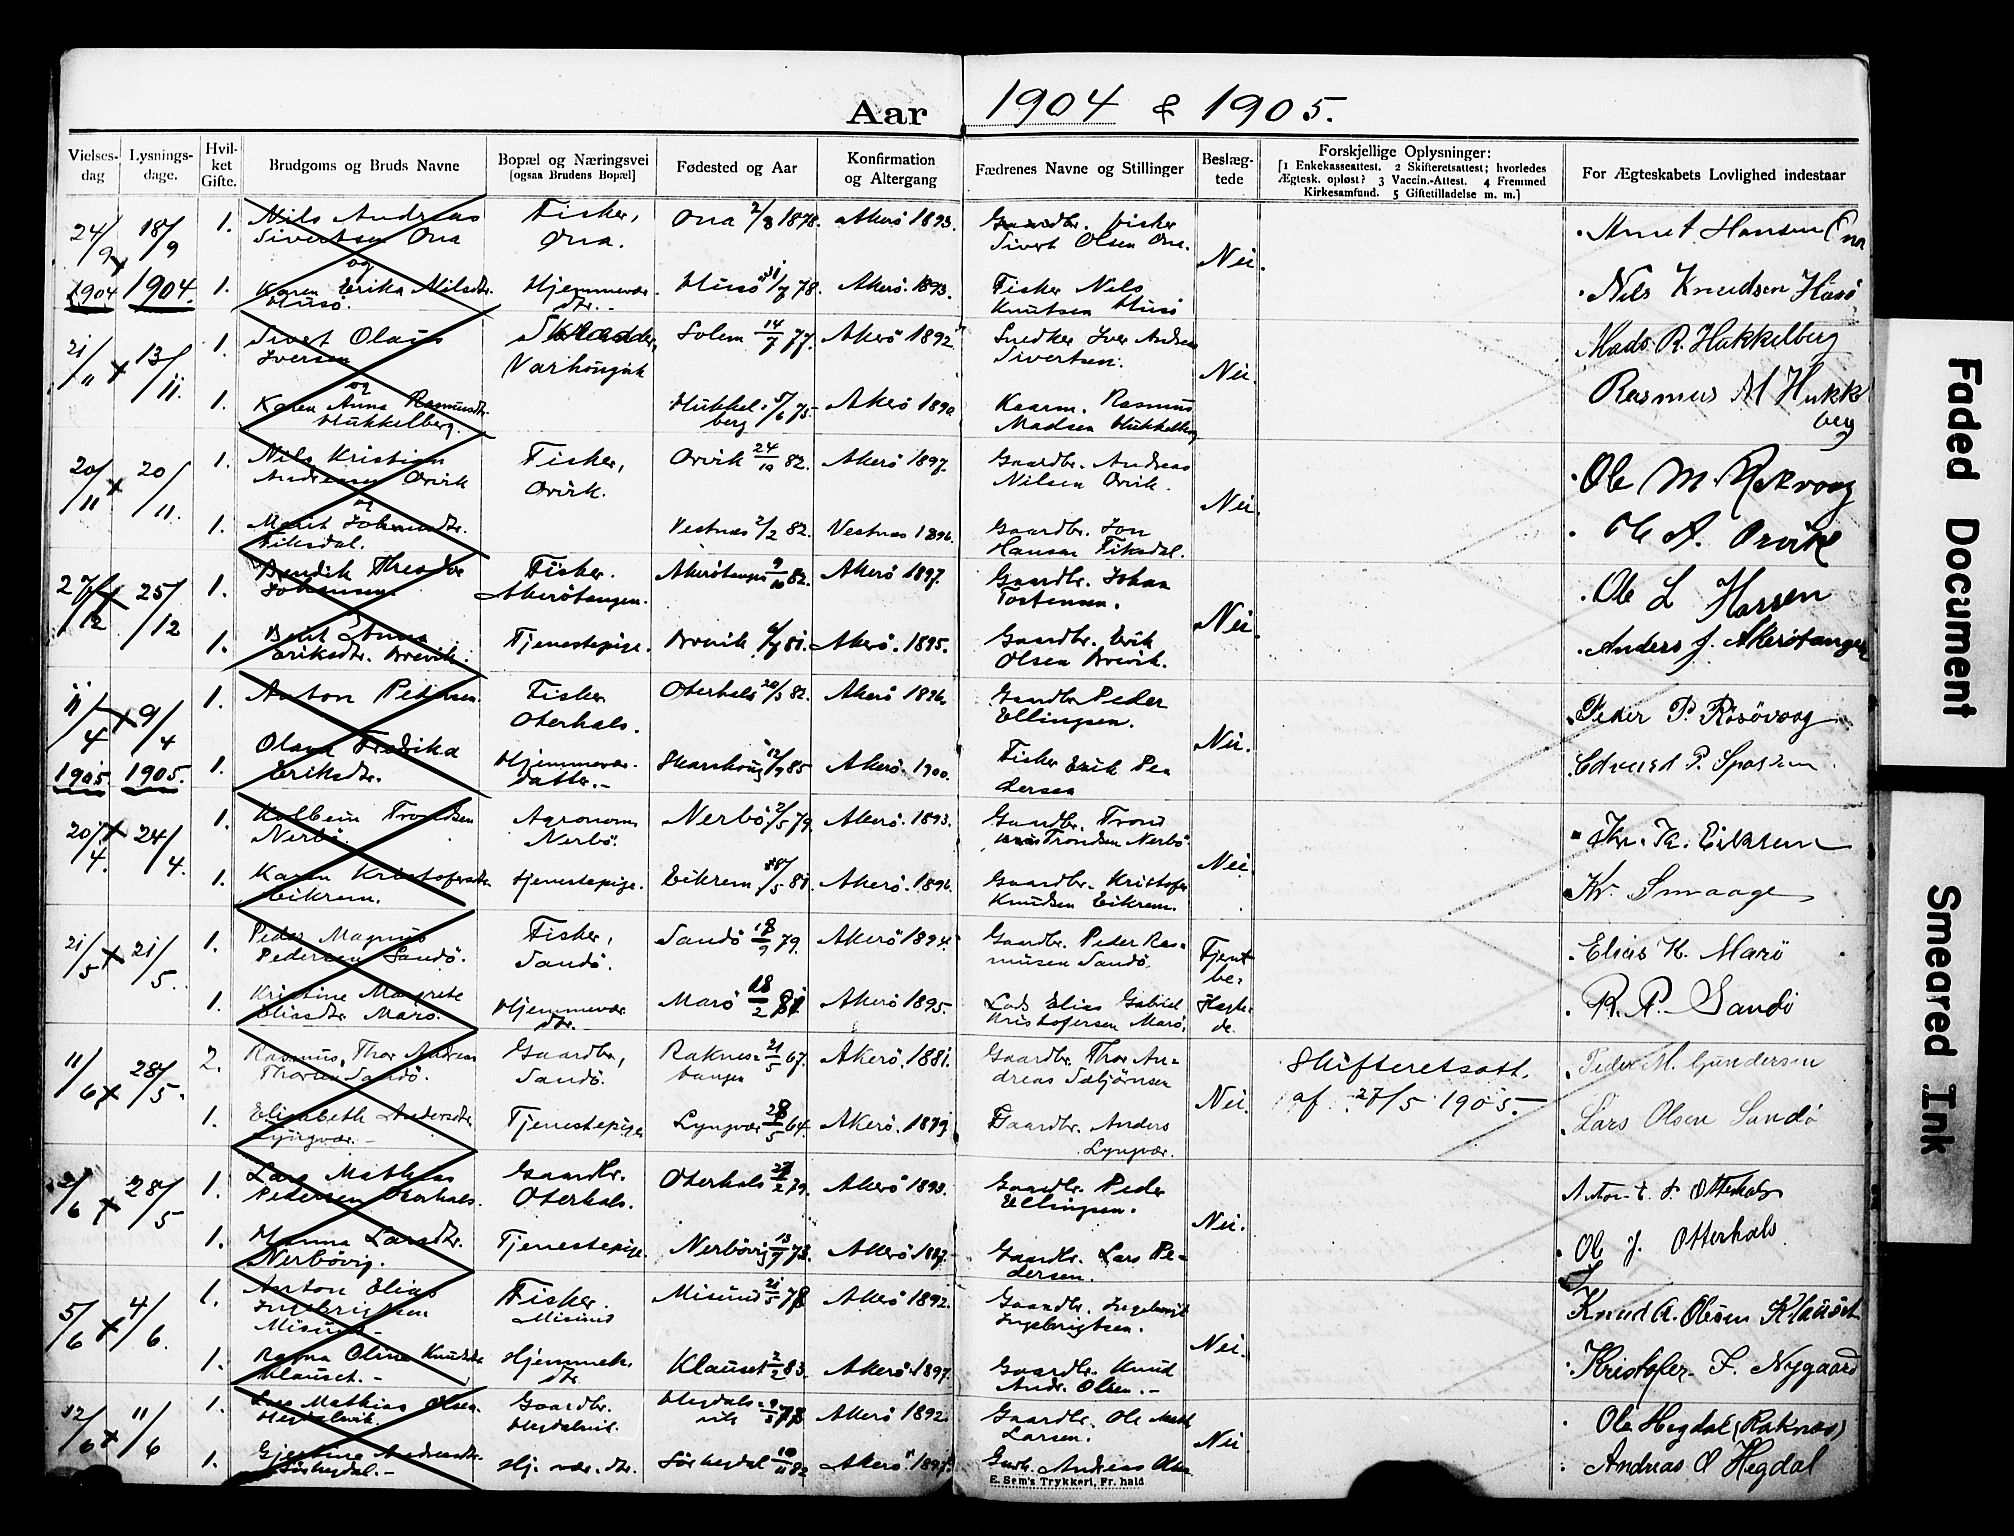 Aar 1904 & 1905.
Vielses-dag
Lysnings-dage.
Hvil-ket Gifte.
Brudgoms og Bruds Navne
Bopæl og Næringsvei [ogsaa Brudens Bopæl]
Fødested og Aar
Konfirmation og Altergang
Fædrenes Navne og Stillinger
Beslæg-tede
Forskjellige Oplysninger: [1 Enkekasseattest. 2 Skifteretsattest; hvorledes Ægtesk. opløst? 3 Vaccin.-Attest. 4 Fremmed Kirkesamfund. 5 Giftetilladelse m. m.]
For Ægteskabets Lovlighed indestaar
24/9 18/9 1. Nils Andreas Fisker, Ona 2/8 1878. Akerö 1893. Gaardbr. Fisker Arnet Hansen Ona
Sivertsen Ona Ona. Sivert Olsen Ona. Nei.
og
1904 1904. 1. Karen Erika Nilsdtr. Hjemmevær. Husö 78. Akerö 1893. Fisker Nils Nils Knudsen Husö
Husö. dtr. Knutsen Husö
21/11 13/11. 1. Sivert Olaus Solem 14/7 77. Akerö 1892. Snedker Iver Andreas Mads R. Hukkelberg
Iversen Varhougvik Sivertsen. Nei.
og
1. Karen Anna Rasmusdtr. Hukkel- 5/6 75. Akerö 1890 Kaarm. Rasmus Rasmus M Hukk
Hukkelberg. berg Madsen Hukkelberg berg
20/11 20/11. 1. Nils Kristian Fisker, Orvik 24/10 82. Akerö 1897. Gaardbr. Andreas Ole M. Rakvaag
Andreassen Orvik Orvik. Nilsen Orvik. Nei.
og
1. Marit Johansdtr. Vestnæs 2/2 82. Vestnæs 1896. Gaardbr. Jon Ole A. Orvik
Fiksdal. Hansen Fiksdal.
27/12 25/12 1. Bendik Theodor Fisker. Akerötangen 9/10 82. Akerö 1897. Gaardbr. Johan Ole L Hansen
Johansen Akerötangen. Tostensen. Nei.
1. Berit Anna Tjenestepige. Brevik 81. Akerö. 1895. Gaardbr. Erik Anders J. Akerötangen
Eriksdtr. Brevik. Olsen Brevik.
11/4 9/4 1. Anton Petersen Fisker Oterhals 20/3 82. Akerö 1896. Gaardbr Peder Peder P. Rösövaag
Oterhals. Ellingsen. Nei.
1905 1905. 1. Olava Fredrika Hjemmevær. Skarshoug 12/9 85 Akerö. 1900. Fisker Erik Pe- Edvard P.
Eriksdtr. datter.- dersen
20/4. 24/4. 1. Kolbein Trondsen Agronom Nerbö 2/5 79. Akerö. 1893. Gaardbr. Trond Kr. K. Eiksem
Nerbö. Nerbö. Trondsen Nerbö Nei.
1. Karen Kristofersdtr. Tjenestepige. Eikrem 81. Akerö. 1896. Gaardbr. Kristofer Kr. Smaage
Eikrem. Knudsen Eikrem.
21/5 21/5. 1. Peder Magnus Fisker, Sandö 18/9 79. Akerö 1894. Gaardbr. Peder Ras- Elias K. Marö
Pedersen Sandö. Sandö. musen Sandö. Fjernt be-
1. Kristine Margrete Hjemmevær Marö 18/2 81. Akerö 1895. Elias Gabriel R. P. Sandö
Eliasdtr Marö. dtr. Kristofersen Marö.
11/6 28/5. 2. Rasmus Thor Andreas Gaardbr, Raknes- 21/5 67. Akerö. 1881. Gaardbr. Thor An- Skifteretsatt. Peder M. Gundersen
Thorsen Sandö. Sandö. tangen dreas Nei. af 27/5 1905.
1. Elisabeth Andersdtr Tjenestepige Lyngvær 28/5 64. Akerö. 1879. Gaardbr. Anders Lars Olsen Sandö
Lyngvær.- Lyngvær.
2/6 28/5 1. Lars Mathias Gaardbr. Oterhals 79. Akerö 1893. Gaardbr. Peder Oterhals
Pedersen Oterhals. Oterhals. Ellingsen. Nei.
1. Hanna Larsdtr. Tjenestepige. Nerbövig 13/9 73. Akerö 1887. Gaardbr. Lars Pe- Ole J. Otterhals
Nerbövig. dersen.
5/6 4/6. 1. Anton Elias Fisker. Misund 21/5 78 Akerö 1892. Gaardbr. Ingebrigt Knud A. Olsen Klauset
Ingebrigtsen Misund Ingebrigtsen. Nei.
Misund.-
1. Ragna Oline Knutsdtr Hjemmev. Klauset 2/2 83. Akerö. 1897. Gaardbr. Knud Kristofer F. Nygaard
Klauset.- dtr Andr. Olsen.-
12/6 11/6 1. Lars Mathias Olsen Gaardbr. Hegdals- vik 78 Akerö 1892. Gaardbr. Ole Math. Ole Hegdal (Raknæs)
Hegdalsvik. Hegdalsvik. Larsen. Nei.
1. Gjertine Andreasdtr Hj. vær. dtr. Sörhegdal 10/11 82 Akerö. 1897. Gaardbr. Andreas Olsen Andreas O Hegdal
Sörhegdal.-
E. Sem's Trykkeri, Fr.hald
Faded Document
Smeared Ink